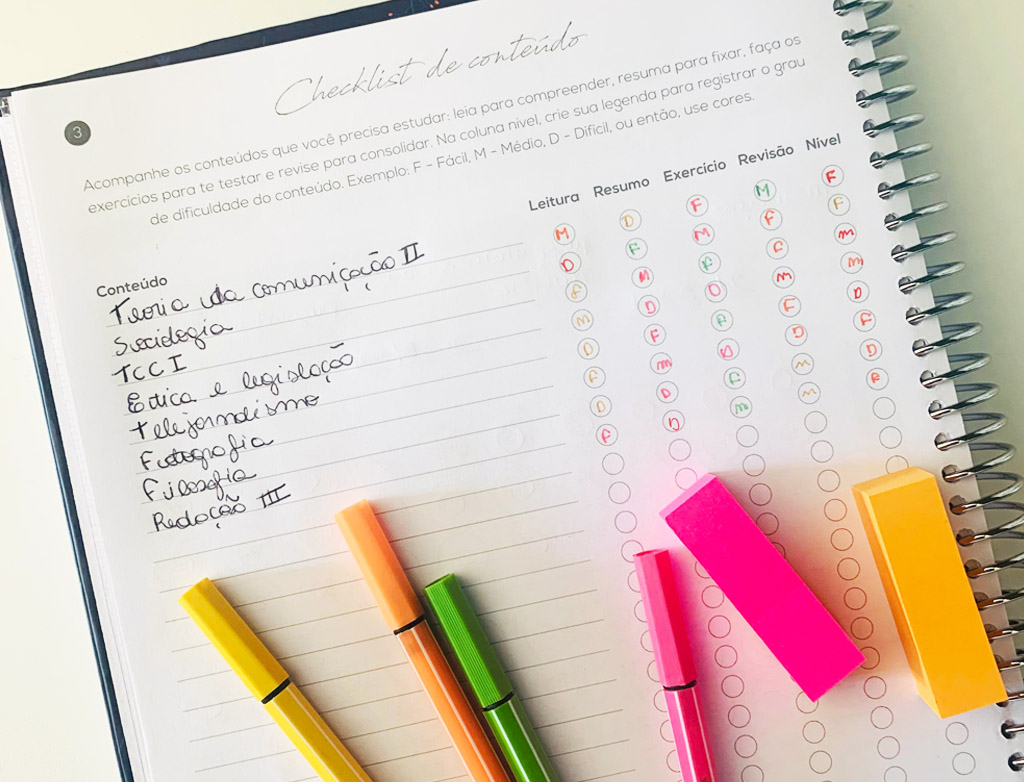 Checklist de conteúdo
3
Acompanhe os conteúdos que você precisa estudar: leia para compreender, resuma para fixar, faça os
exercícios para te testar e revise para consolidar. Na coluna nível, crie sua legenda para registrar o grau
de dificuldade do conteúdo. Exemplo: F - Fácil, M - Médio, D - Difícil, ou então, use cores.
Conteúdo Leitura Resumo Exercício Revisão Nível
Teoria da comunicação II M D F M F
Sociologia D F M F F
TCC I F M F F m
Ética e legislação M D D m m
Telejornalismo D F F F D
Fotografia F m D D F
Filosofia D D F m D
Redação III F D m m